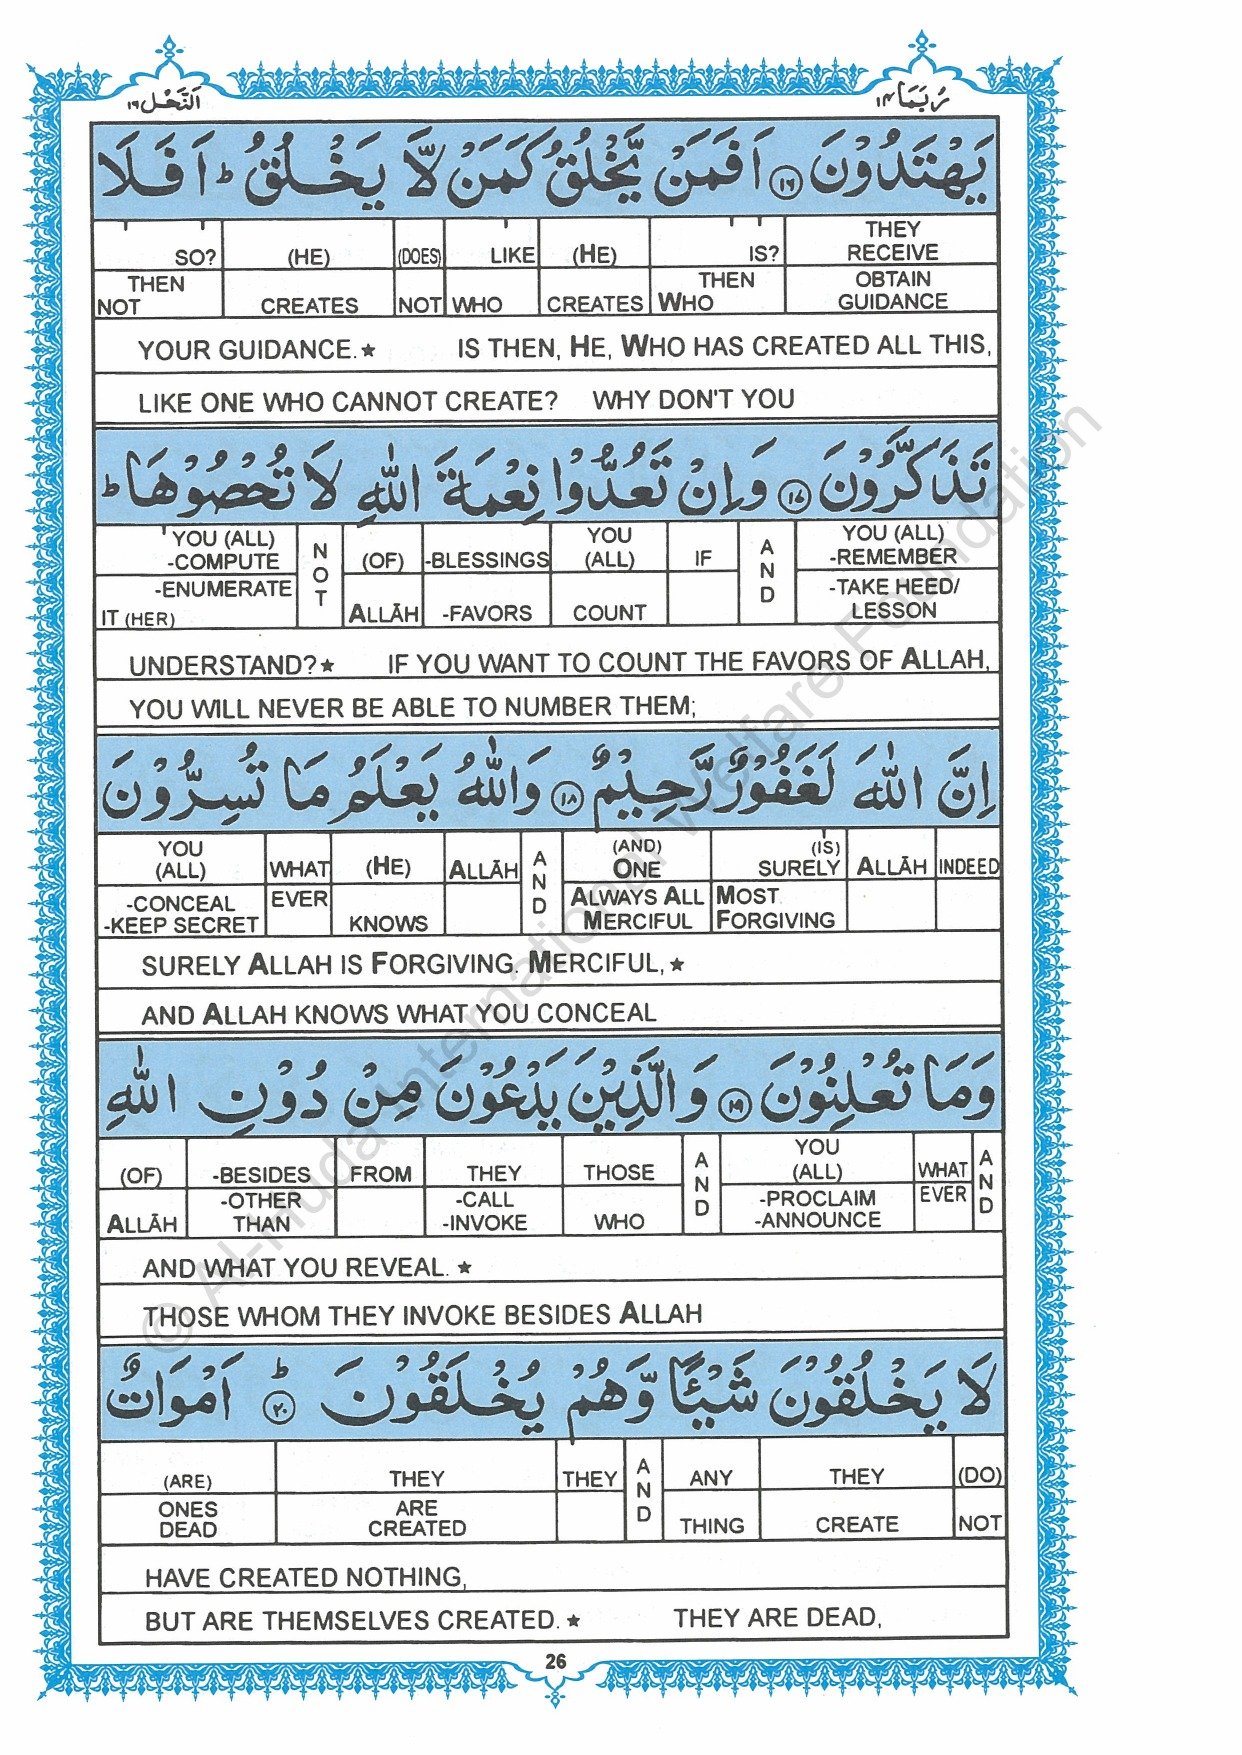 رُبَمَا ١٤
اَلنَّحْل ١٦
يَهْتَدُوْنَ ١٦ اَفَمَنْ يَّخْلُقُ كَمَنْ لَّا يَخْلُقُ ؕ اَفَلَا
SO? (HE) (DOES) LIKE (HE) IS? THEY RECEIVE
THEN NOT CREATES NOT WHO CREATES THEN WHO OBTAIN GUIDANCE
YOUR GUIDANCE.★ IS THEN, HE, WHO HAS CREATED ALL THIS,
LIKE ONE WHO CANNOT CREATE? WHY DON'T YOU
تَذَكَّرُوْنَ ١٧ وَاِنْ تَعُدُّوْا نِعْمَةَ اللّٰهِ لَا تُحْصُوْهَا ؕ
YOU (ALL) -COMPUTE NOT (OF) -BLESSINGS YOU (ALL) IF AND YOU (ALL) -REMEMBER
-ENUMERATE IT (HER) ALLĀH -FAVORS COUNT -TAKE HEED/ LESSON
UNDERSTAND?★ IF YOU WANT TO COUNT THE FAVORS OF ALLAH,
YOU WILL NEVER BE ABLE TO NUMBER THEM;
اِنَّ اللّٰهَ لَغَفُوْرٌ رَّحِيْمٌ ١٨ وَاللّٰهُ يَعْلَمُ مَا تُسِرُّوْنَ
YOU (ALL) WHAT (HE) ALLĀH AND (AND) ONE (IS) SURELY ALLĀH INDEED
-CONCEAL -KEEP SECRET EVER KNOWS ALWAYS ALL MERCIFUL MOST FORGIVING
SURELY ALLAH IS FORGIVING. MERCIFUL,★
AND ALLAH KNOWS WHAT YOU CONCEAL
وَمَا تُعْلِنُوْنَ ١٩ وَالَّذِيْنَ يَدْعُوْنَ مِنْ دُوْنِ اللّٰهِ
(OF) -BESIDES FROM THEY THOSE AND YOU (ALL) WHAT AND
ALLĀH -OTHER THAN -CALL -INVOKE WHO -PROCLAIM -ANNOUNCE EVER
AND WHAT YOU REVEAL. ★
THOSE WHOM THEY INVOKE BESIDES ALLAH
لَا يَخْلُقُوْنَ شَيْـًٔا وَّهُمْ يُخْلَقُوْنَ ؕ ٢٠ اَمْوَاتٌ
(ARE) THEY THEY AND ANY THEY (DO)
ONES DEAD ARE CREATED THING CREATE NOT
HAVE CREATED NOTHING,
BUT ARE THEMSELVES CREATED. ★ THEY ARE DEAD,
26
© Al-Huda International Welfare Foundation